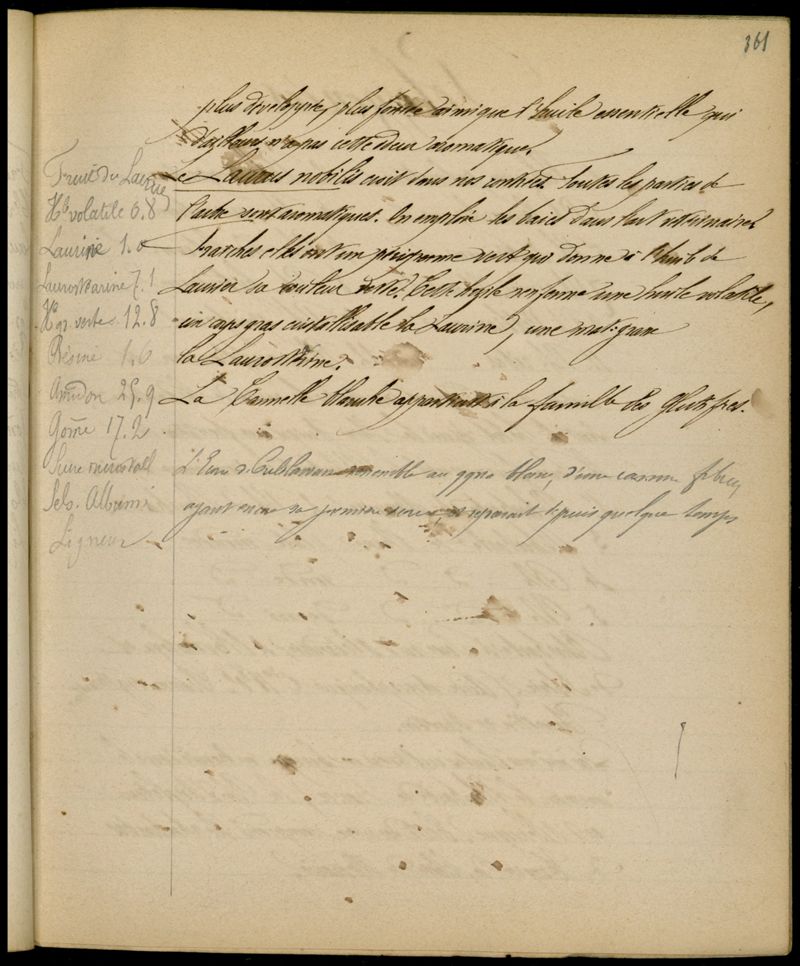 361
plus développée, plus foncée ainsi que l'huile essentielle qui
d'ailleurs n'a pas cette odeur aromatique.
Le Laurus nobilis croit dans nos contrées. Toutes les parties de
l'arbre sont aromatiques. On emploie les baies dans l'art vétérinaire
Fraiches elles ont un périsperme vert qui donne à l'huile de
Laurier sa couleur verte. Cette huile renferme une huile volatile,
un corps gras cristallisable la Laurine, une mat. grasse
la Laurostéarine.
La Cannelle blanche appartient à la famille des Guttifères.
L'Ecorce de Culilawan ressemble au blanc, d'une cassure fibreuse,
ayant encore sa première écorce, et reparait depuis quelque temps
Fruit du Laurier
Hle volatile 0.8
Laurine 1.0
Laurostéarine 7.1
Hle gr. verte 12.8
Résine 1.6
Amidon 25.9
Gome 17.2
Sucre incristall
Sels. Albumi
Ligneux